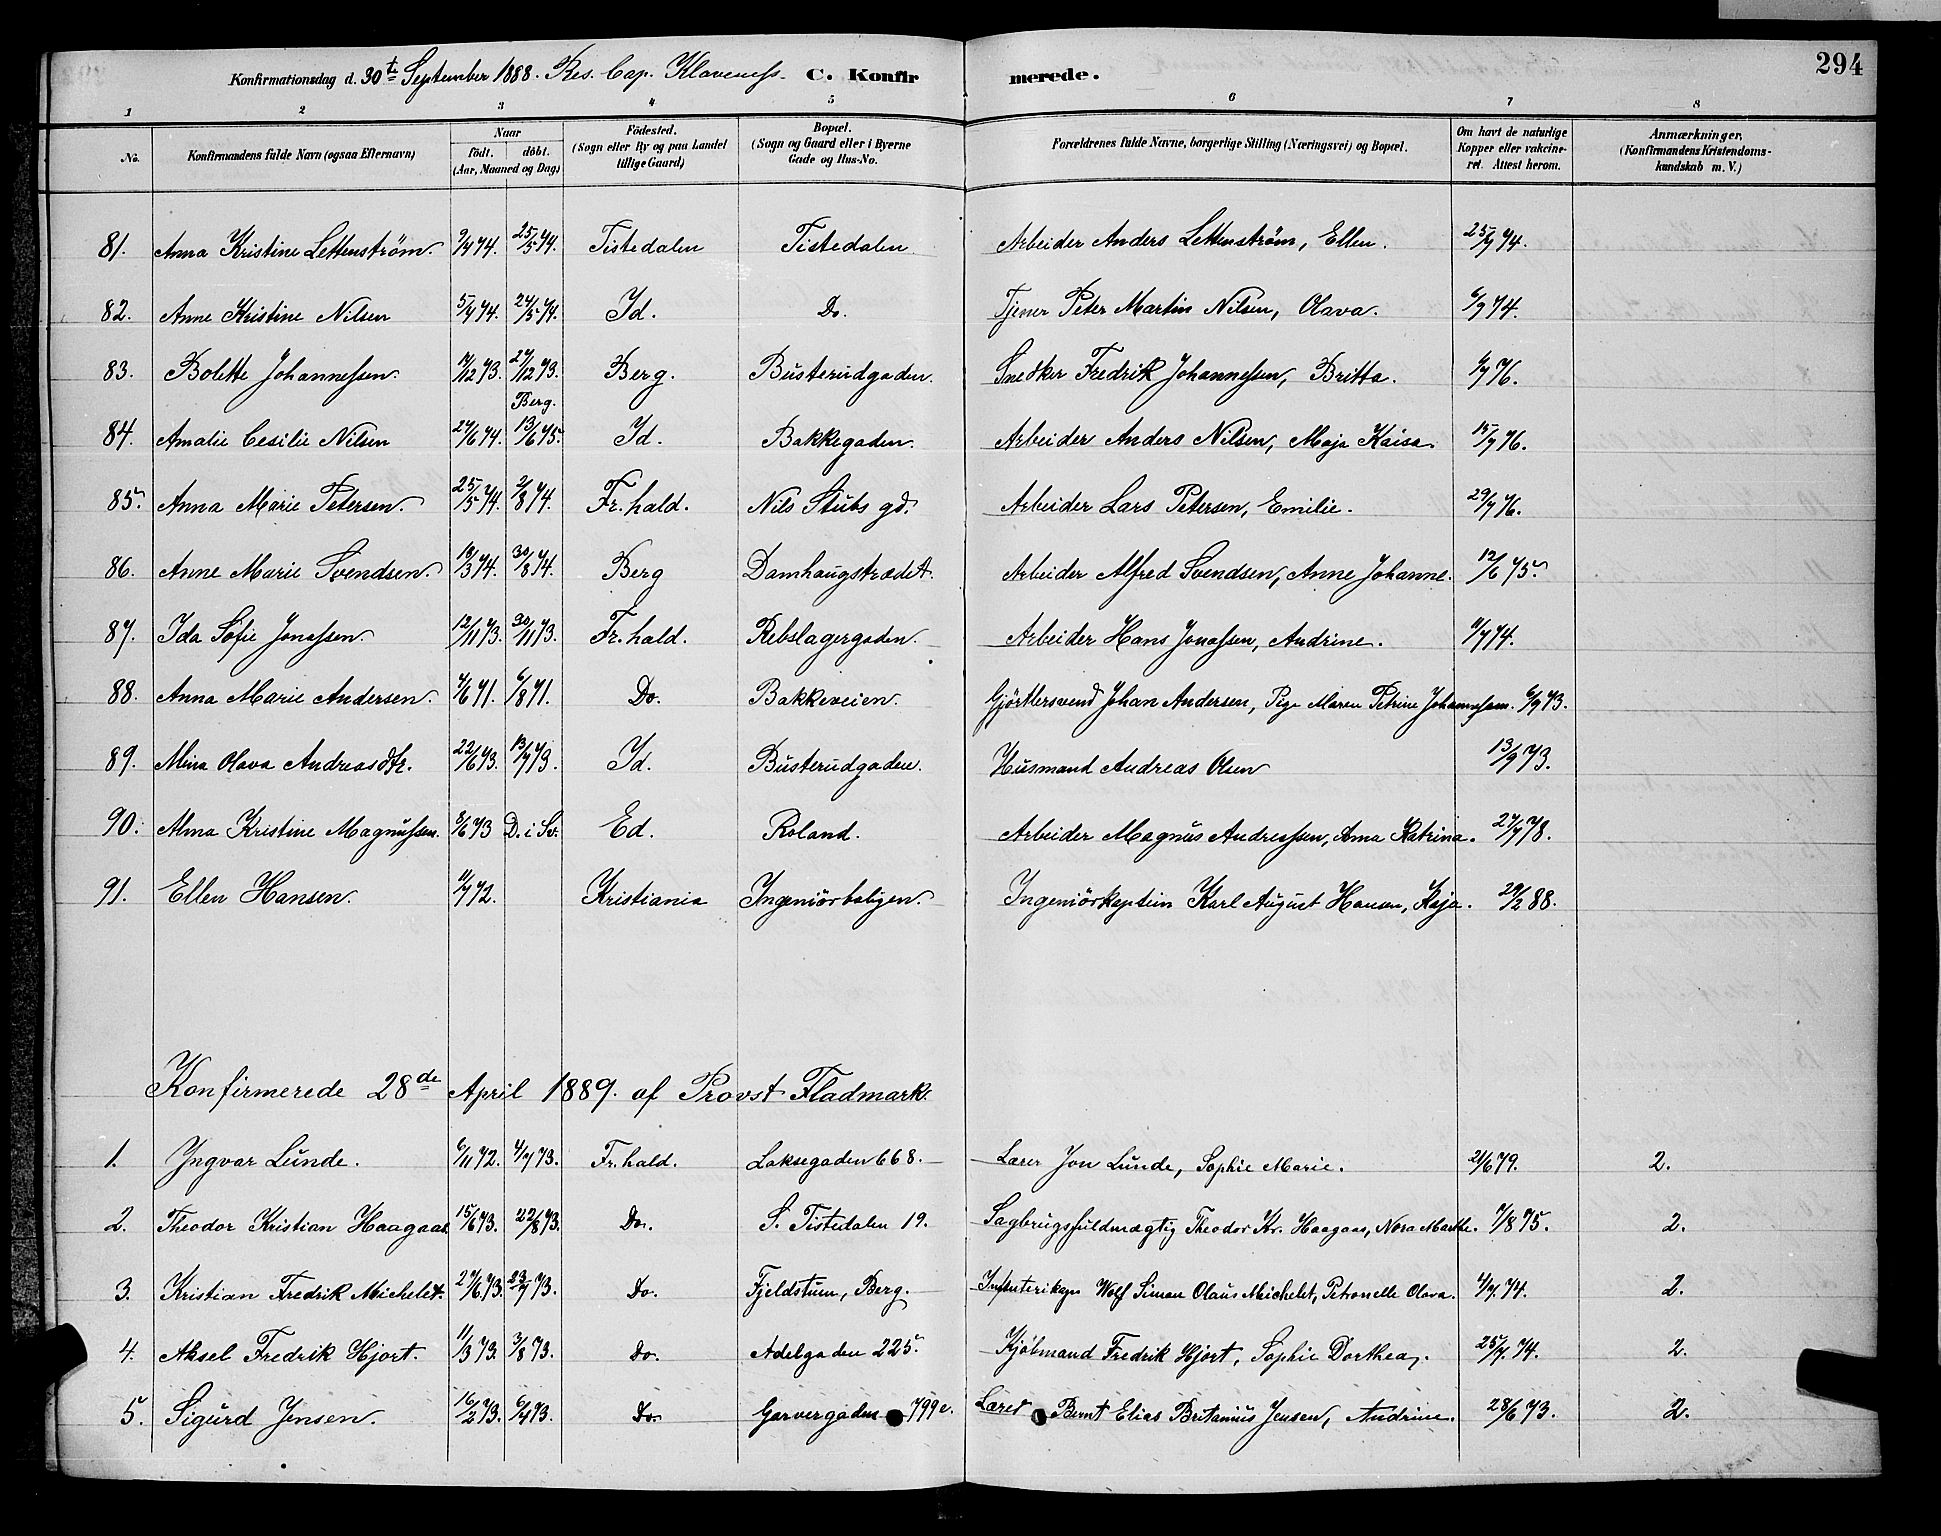 294
Konfirmationsdag d. 30te September 1888. Res. Cap. Klaveness. C. Konfirmerede.
1 2 3 4 5 6 7 8
No. Konfirmandens fulde Navn (ogsaa Efternavn) Naar født. døbt. (Aar, Maaned og Dag) Fødested. (Sogn eller By og paa Landet tillige Gaard) Bopæl. (Sogn og Gaard eller i Byerne Gade og Hus-No. Forældrenes fulde Navne, borgerlige Stilling (Næringsvei) og Bopæl. Om havt de naturlige Kopper eller vakcineret. Attest herom. Anmærkninger, (Konfirmandens Kristendomskundskab m. V.)
81. Anna Kristine Lettenström. 9/4 74. 25/5 74. Tistedalen Tistedalen Arbeider Anders Lettenström, Ellen. 25/9 74.
82. Anne Kristine Nilsen 5/4 74. 24/5 74. Id. Do. Tjener Peter Martin Nilsen, Olava. 6/9 74.
83. Bolette Johannessen. 17/12 73. 27/12 73. Berg. Busterudgaden. Snedker Fredrik Johannessen, Britta. 76.
84. Amalie Cesilie Nilsen 27/6 74. Berg. 13/6 75. Id. Bakkegaden. Arbeider Anders Nilsen, Maja Kaisa. 15/7 76.
85. Anna Marie Petersen. 25/5 74. 2/8 74. Fr.hald. Nils Stubs gd. Arbeider Lars Petersen, Emilie. 29/7 76.
86. Anne Marie Svendsen. 18/3 74. 30/8 74. Berg Damhaugstrædet. Arbeider Alfred Svendsen, Anne Johanne. 12/6 75.
87. Ida Sofie Jonassen. 12/11 73. 30/11 73. Fr.hald. Rebslagergaden. Arbeider Hans Jonassen, Andrine. 11/7 74.
88. Anna Marie Andersen. 4/6 71. 6/8 71. Do. Bakkeveien. Gjörtlersvend Johan Andersen, Pige Maren Petrine Johannessen. 6/9 73.
89. Mina Olava Andreasdtr. 22/6 73. 13/7 73. Id. Busterudgaden. Husmand Andreas Olsen 13/9 73.
90. Alma Kristine Magnussen. 8/6 73 D. i Sv. Ed. Roland. Arbeider Magnus Andreassen, Anna Katrina. 27/7 78.
91. Ellen Hansen. 11/7 72. Kristiania Ingeniörboligen. Ingeniörkaptein Karl August Hansen, Kaja. 29/2 88.
Konfirmerede 28de April 1889. af Provst Fladmark.
1. Yngvar Lunde. 6/11 72. 4/7 73. Fr.hald. Laksegaden 668. Lærer Jon Lunde, Sophie Marie. 21/6 79. 2.
2. Theodor Kristian Haagaas. 15/6 73. 22/8 73. Do. S. Tistedalen 19. Sagbrugsfuldmægtig Theodor Kr. Haagaas, Nora Marthe. 7/8 75. 2.
3. Kristian Fredrik Michelet. 27/6 73. 23/7 73. Do. Fjeldstuen, Berg. Infanterikapt Wolf Simon Olaus Michelet, Petronelle Olava. 4/9. 74. 2.
4. Aksel Fredrik Hjort. 11/3 73. 3/8 73. Do. Adelgaden 225. Kjöbmand Fredrik Hjort, Sophie Dorthea. 25/7. 74. 2.
5. Sigurd Jensen. 16/2 73. 6/4 73. Do. Garvergaden 799c. Lærer Bernt Elias Britanius Jensen, Andrine. 28/6 73. 2.